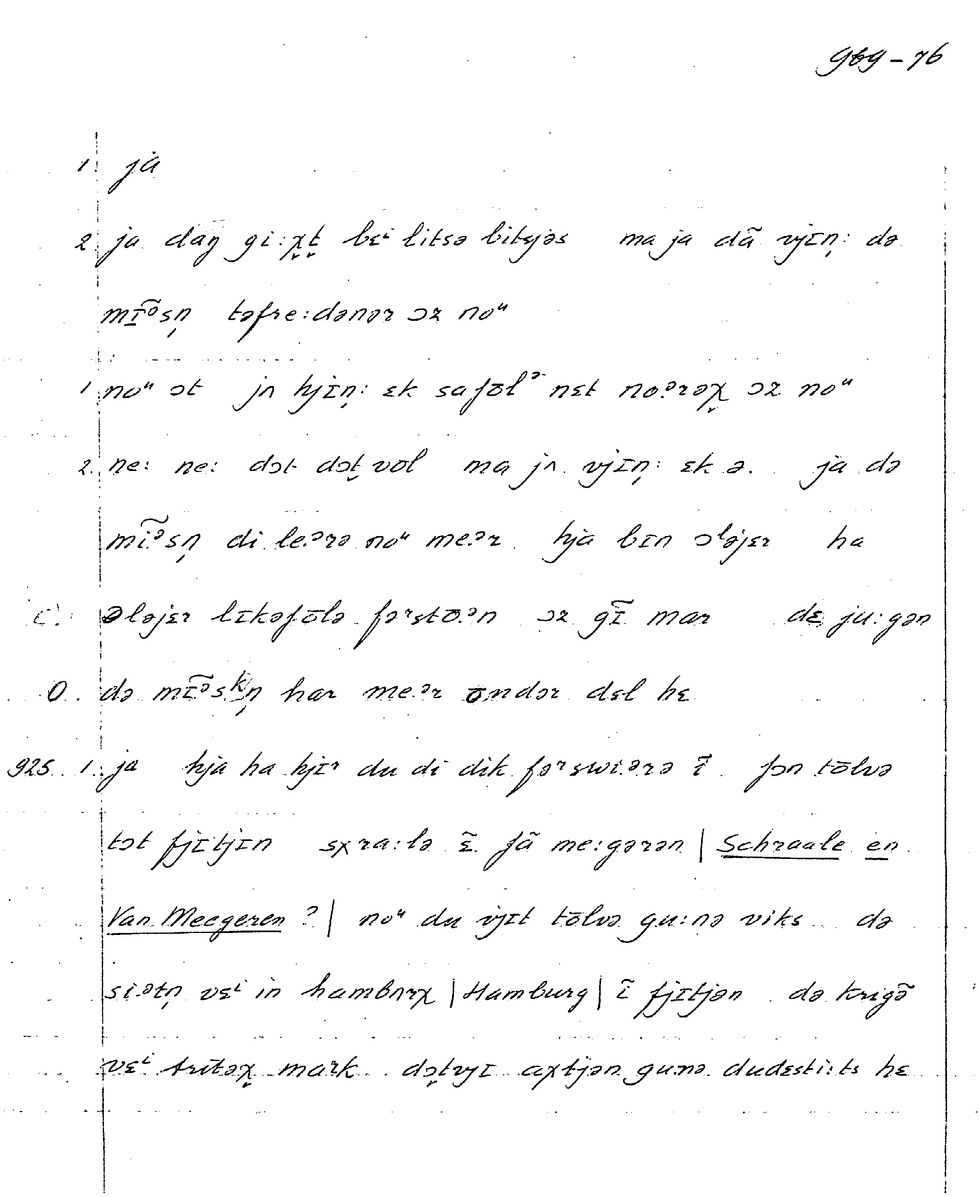 gbg – 76
1. ja
2 ja daŋ gi:χt bɛⁱ litsə bitsjəs ma ja dã vjɪn̩: də
mɪ̃ᵊsn̩ təfre:dənər ɔz noᵘ
1 noᵘ ɔt jʌ hjɪn̩: ɛk safōlᵊ nɛt no.ᵊrəχ ɔz noᵘ
2. ne: ne: dɔt dɔt vol ma jʌ vjɪn̩: ɛk ə. ja də
mĩ.ᵊsn̩ di le.ᵊrə noᵘ me.ᵊr hja bɪn ɔləjɛr ha
C. ələjɛr lɪkəfōlə fəʳstō.ən ɔz gĩ mar dɛ ju:gən
O. də mɪ̃ᵊskn̩ har me.ᵊr ōndər dɛl hɛ
925. 1. ja hja ha hjɪʳ du di dik fəʳswi.ərə ĩ fɔn tōlvə
tɔt fjɪtjɪn sxra:lə ɛ̃. fã me:gərən | Schraale en
Van Meegeren ? | noᵘ du vjɪt tōlvə gu:nə viks də
si.ətn̩ vɛⁱ in hambʌrχ | Hamburg | ĩ fjɪtjən də krigə̃
vɛⁱ tritəχ mark dətvyɪ axtjən gu:nə dudɛsti:ts hɛ